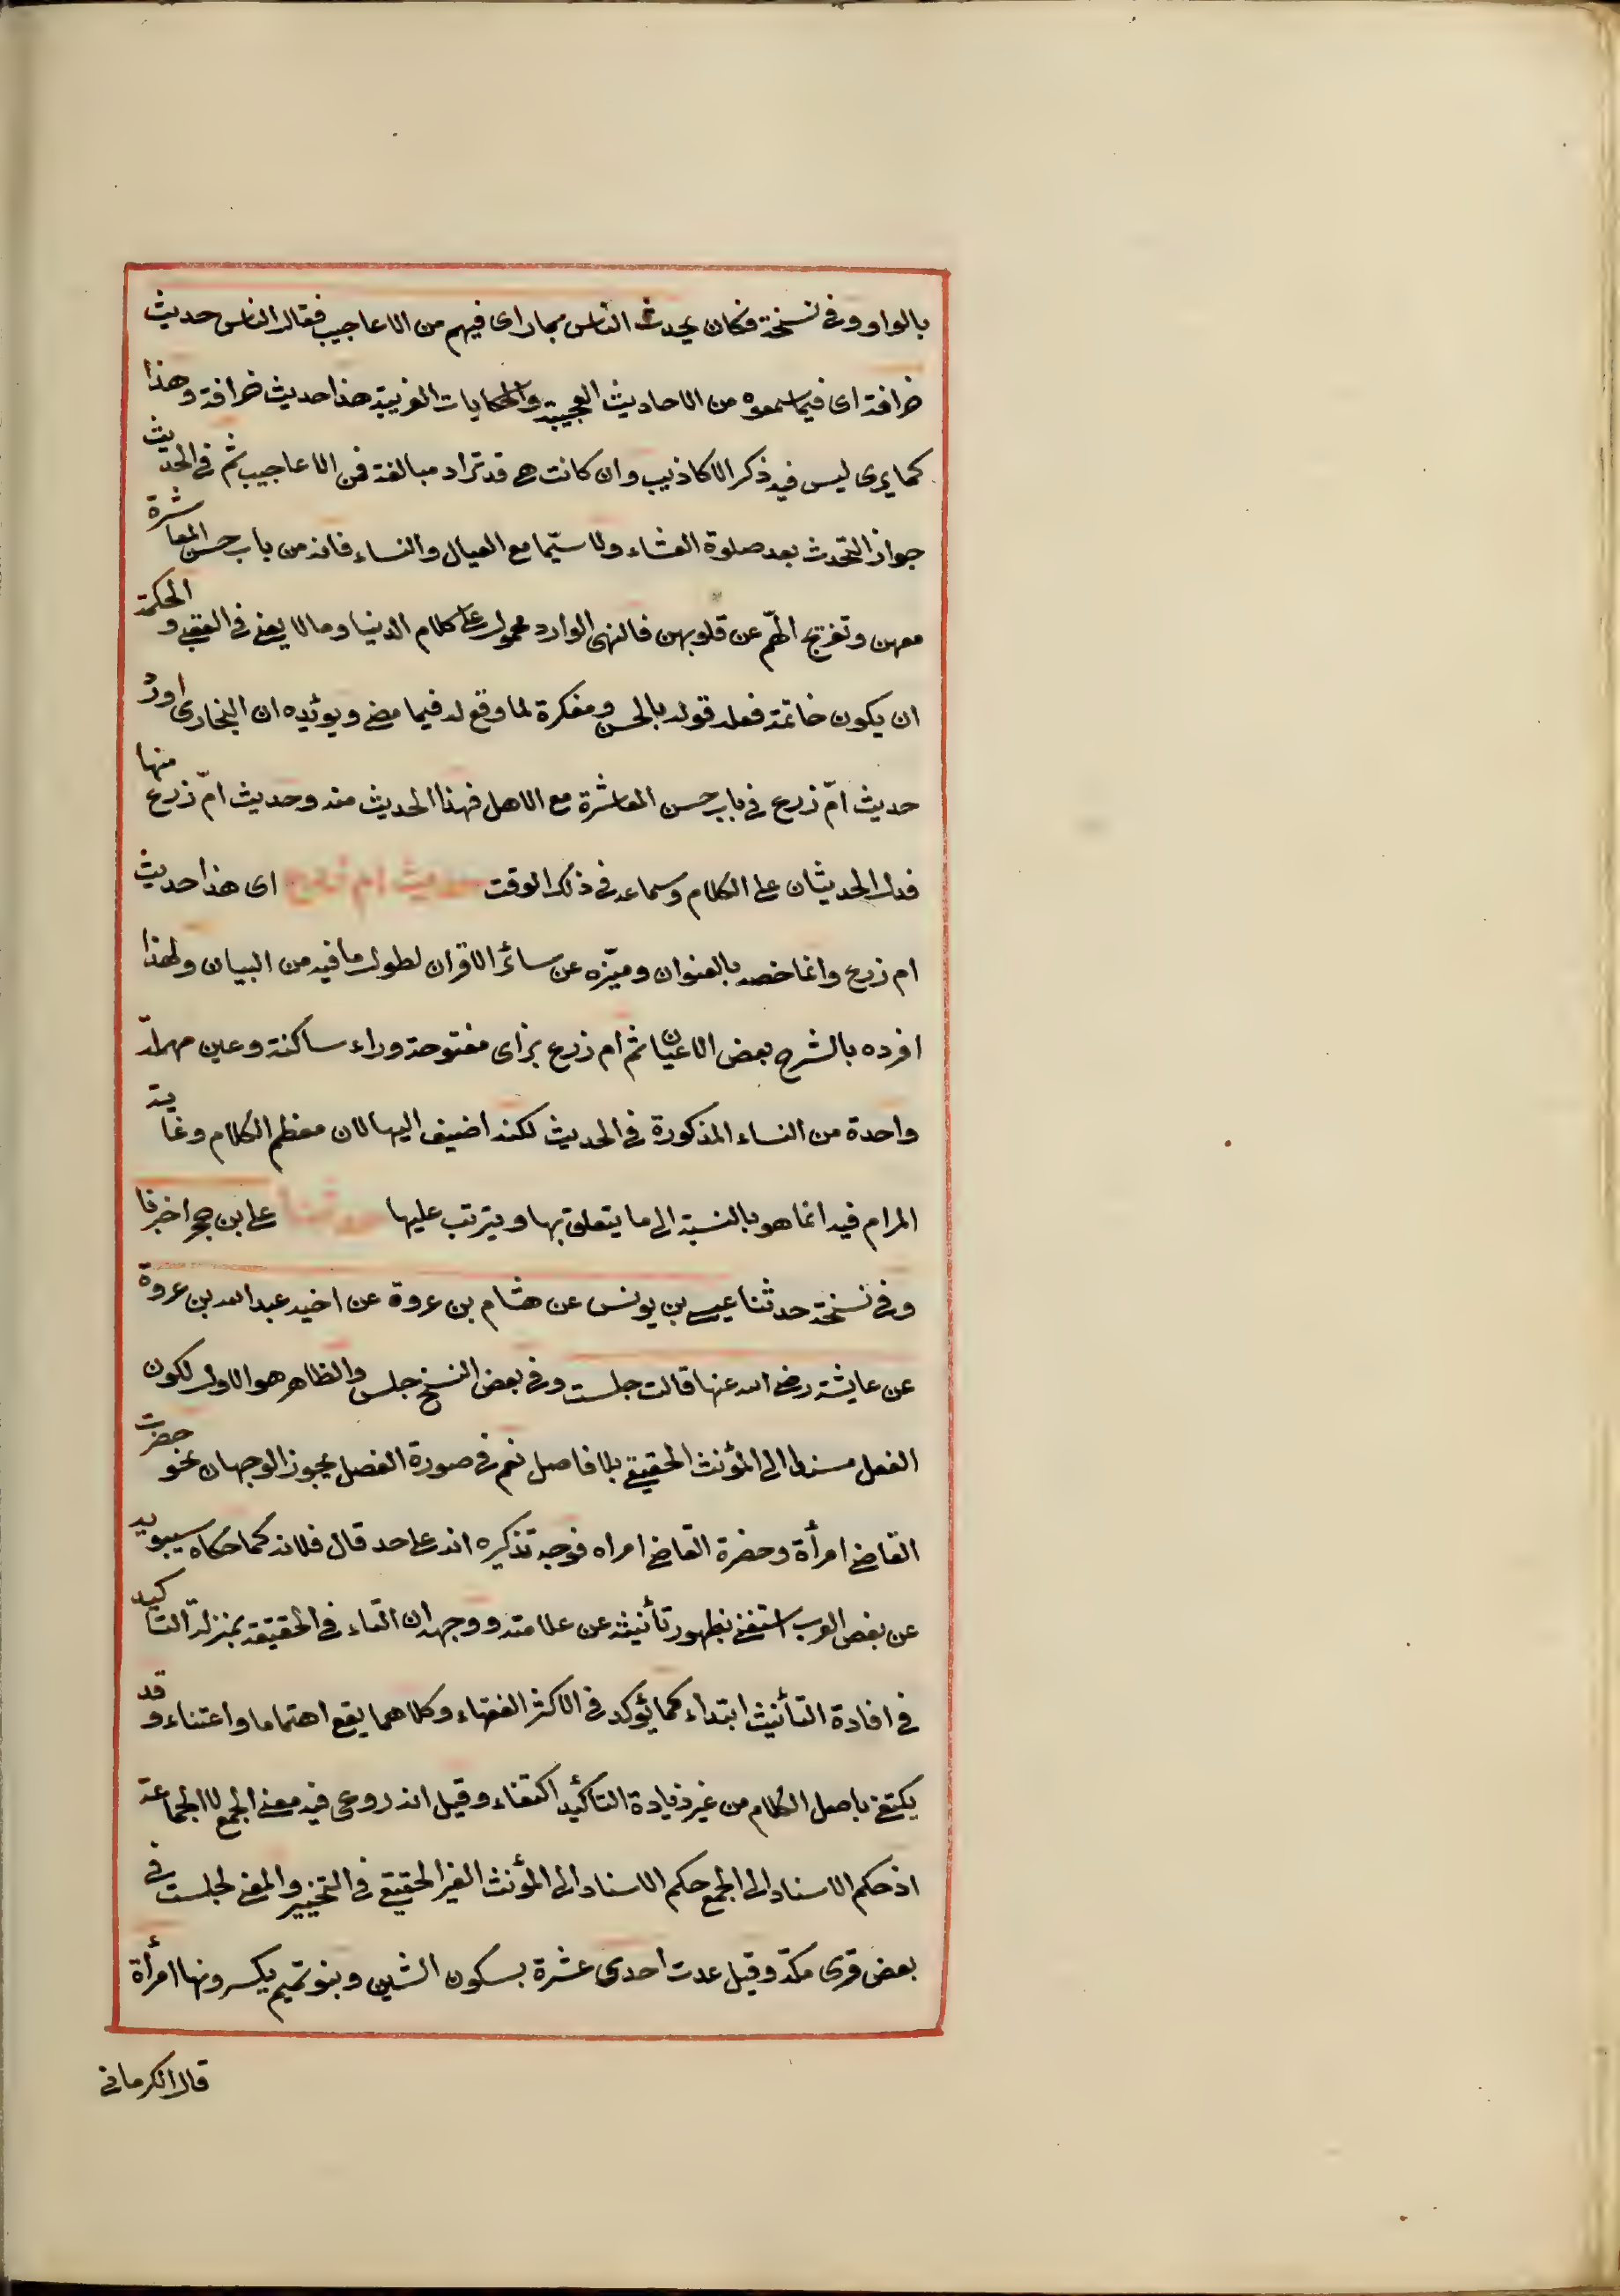 بالواو وفى نسخة فكان يحدث الناس بما راى فيهم من الاعاجيب فقال الناس حديث
خرافة اى فيما سمعوه من الاحاديث العجيبة والحكايات الغريبة هذا حديث خرافة وهذا
كما يرى ليس فيه ذكر الاكاذيب وان كانت هى قد تراد مبالغة فى الاعاجيب ثم فى الحديث
جواز التحدث بعد صلوة العشاء ولا سيّما مع العيال والنساء فانه من باب حسن المعاشرة
معهن وتفريج الهمّ عن قلوبهن فالنهى الوارد محمول على كلام الدنيا وما لا يعنى فى العقبى و الحكمة
ان يكون خاتمة فعله قوله بالحسن ومفكرة لما وقع له فيما مضى ويؤيده ان البخارى اورد
حديث امّ زرع فى باب حسن المعاشرة مع الاهل فهذا الحديث منه وحديث امّ زرع منها
فدل الحديثان على الكلام وسماعه فى ذلك الوقت حديث ام زرع اى هذا حديث
ام زرع وانما خصه بالعنوان وميّزه عن سائر الاقران لطول ما فيه من البيان ولهذا
افرده بالشرح بعض الاعيان ثم ام زرع بزاى مفتوحة وراء ساكنة وعين مهملة
واحدة من النساء المذكورة فى الحديث لكنه اضيف اليها لان معظم الكلام وغاية
المرام فيه انما هو بالنسبة الى ما يتعلق بها ويترتب عليها حدثنا على بن حجر اخبرنا
وفى نسخة حدثنا عيسى بن يونس عن هشام بن عروة عن اخيه عبد الله بن عروة
عن عايشة رضى الله عنها قالت جلست وفى بعض النسخ جلس والظاهر هو الاول لكون
الفعل مسندا الى المؤنث الحقيقى بلا فاصل نعم فى صورة الفصل يجوز الوجهان نحو حضرت
القاضى امرأة وحضرة القاضى امراه فوجه تذكيره انه على حد قال فلانه كما حكاه سيبويه
عن بعض العرب استغنى بظهور تأنيثه عن علامته ووجهه ان التاء فى الحقيقة بمنزلة التاكيد
فى افادة التأنيث ابتداء كما يؤكد فى الاكثر الفقهاء وكلاهما يقع اهتماما واعتناء و قد
يكتفى باصل الكلام من غير زيادة التأكيد اكتفاء وقيل انه روعى فيه معنى الجمع لا الجماعة
اذ حكم الاسناد الى الجمع حكم الاسناد الى المؤنث الغير الحقيقى فى التخيير والمعنى لجلست فى
بعض قرى مكة وقيل عدت احدى عشرة بسكون الشين وبنو تميم يكسرونها امرأة
قال الكرمانى